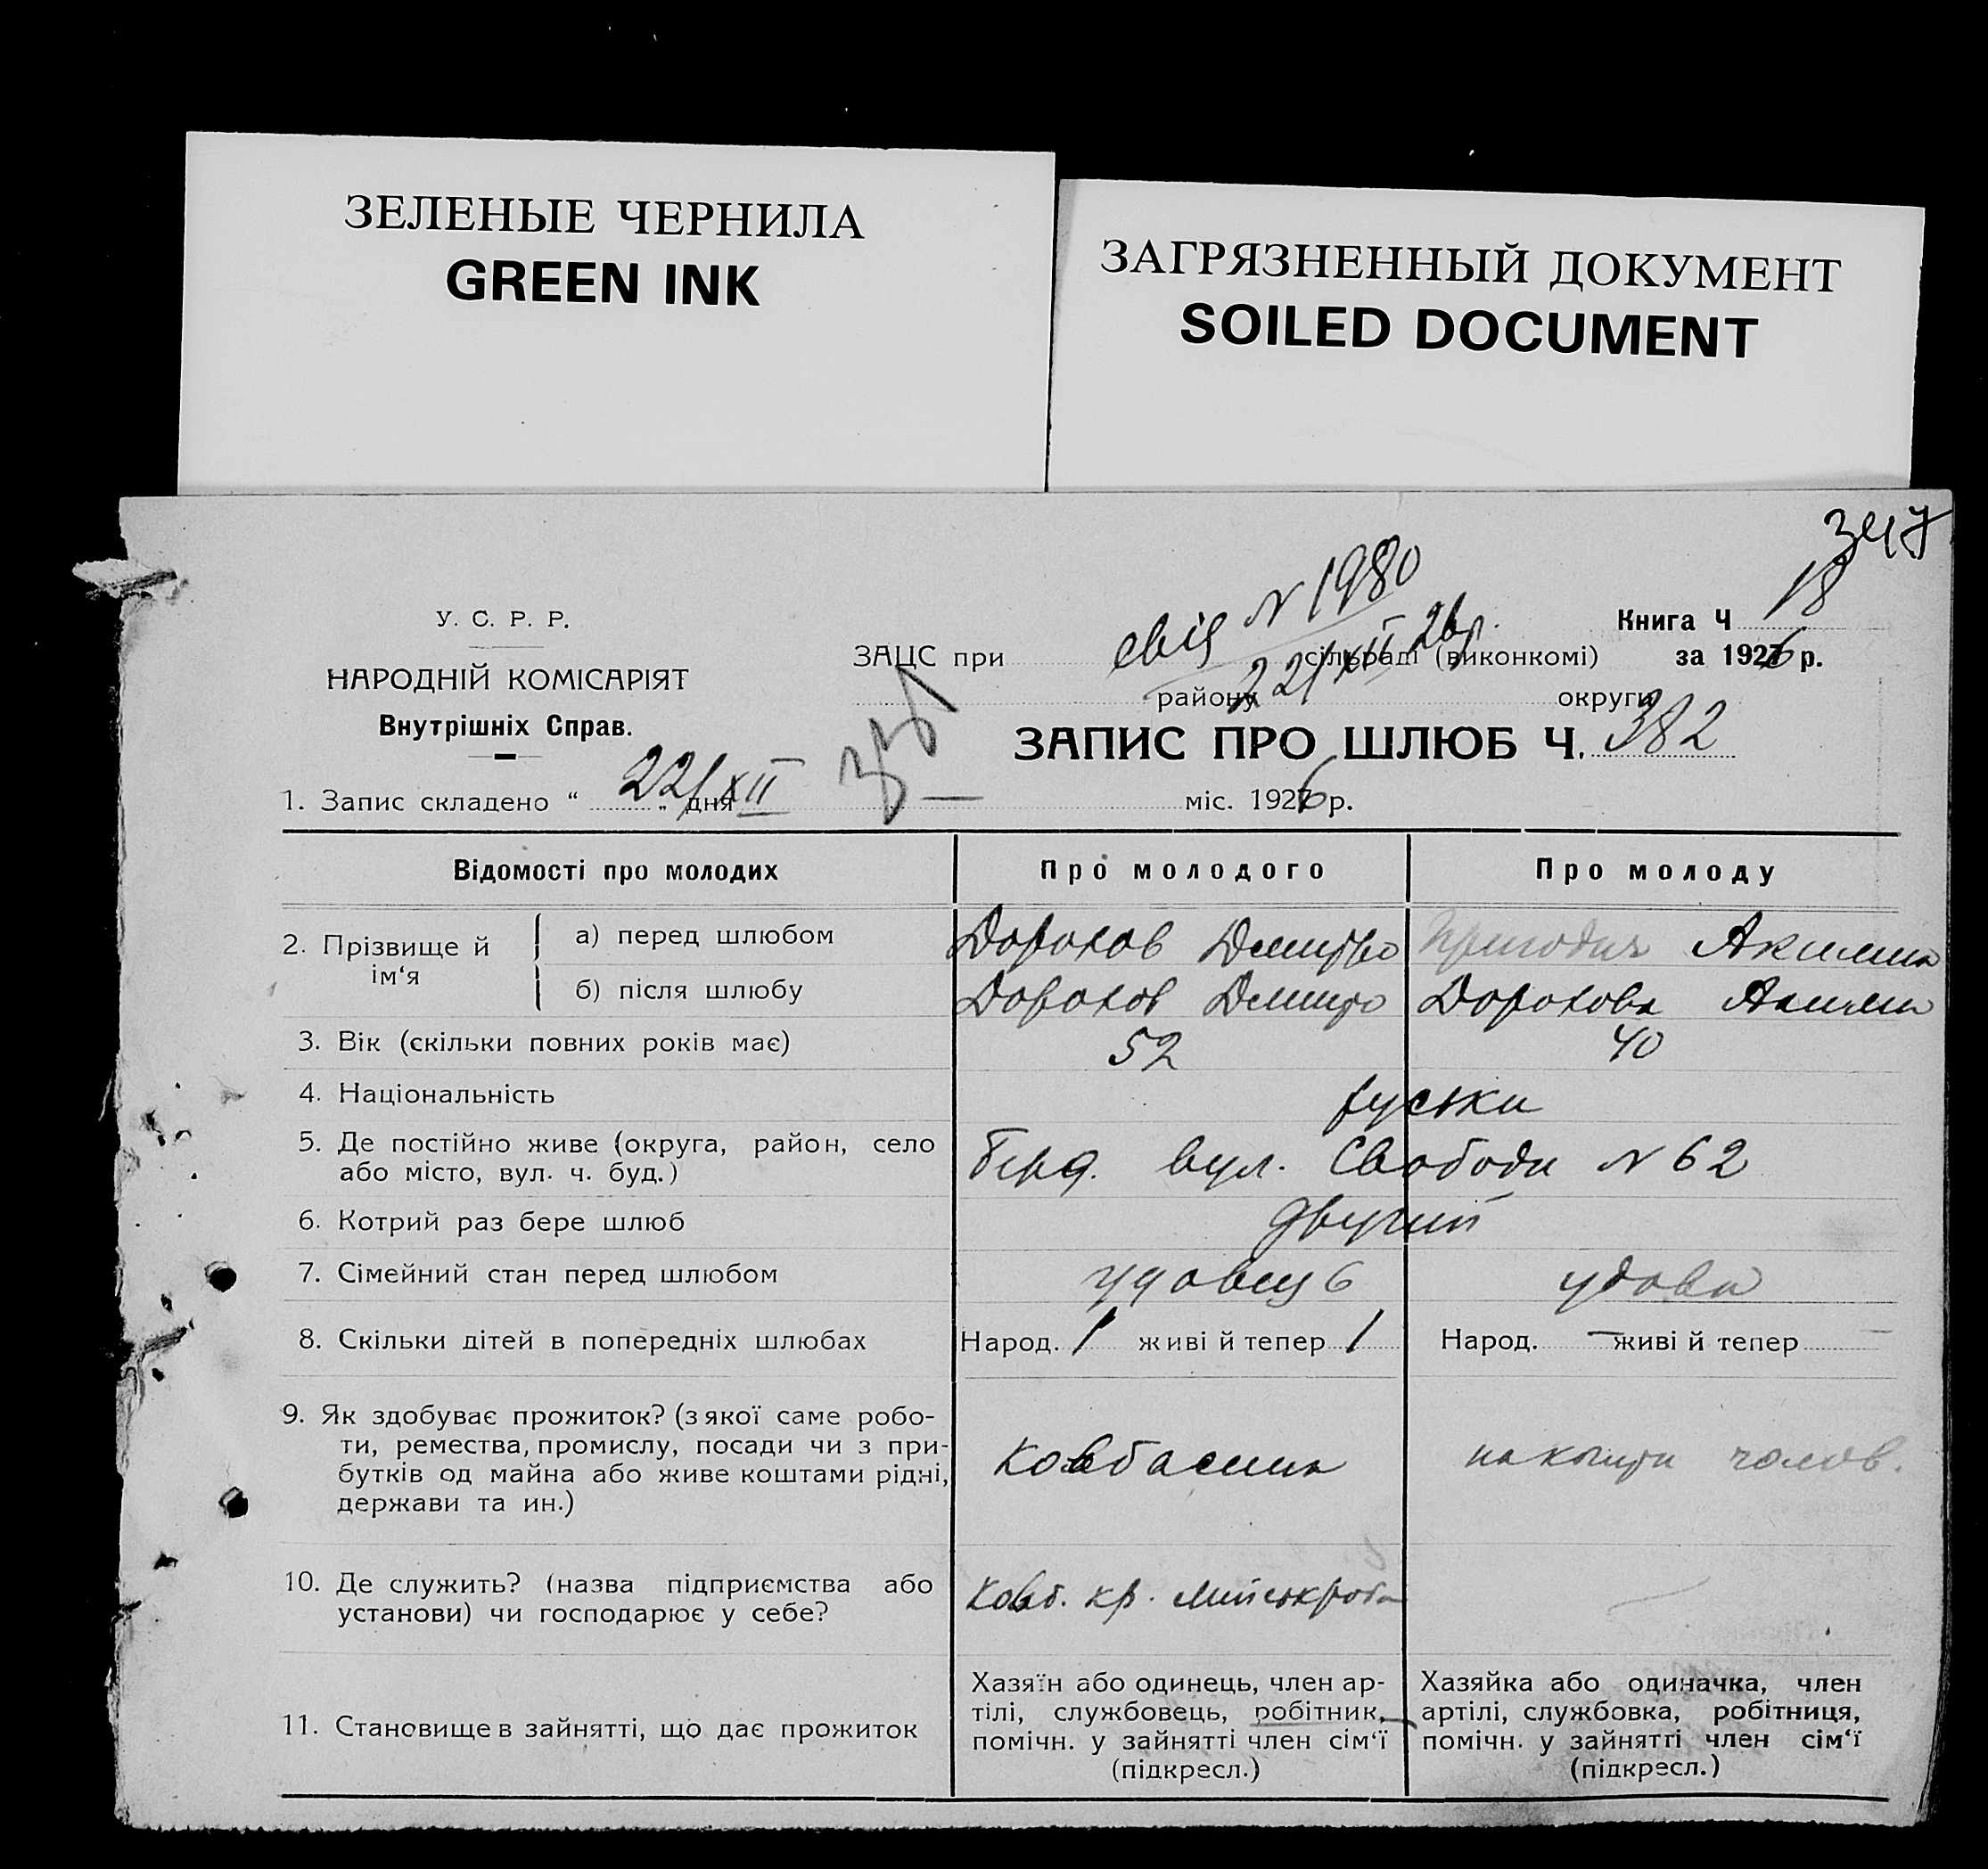 ЗЕЛЕНЫЕ ЧЕРНИЛА
GREEN INK
ЗАГРЯЗНЕННЫЙ ДОКУМЕНТ
SOILED DOCUMENT
347
У. С. Р. Р.
НАРОДНІЙ КОМІСАРІЯТ
Внутрішніх Справ.
свід N 1980
22/XII 26 р.
Книга Ч 18
ЗАЦС при сільраді (виконкомі) за 1926 р.
району округи
ЗАПИС ПРО ШЛЮБ Ч. 382
1. Запис складено “ 22/XII „ дня міс. 1926 р.
Відомості про молодих
Про молодого
Про молоду
2. Прізвище й ім‘я
а) перед шлюбом
Дорохов Дмитро
Акилина
б) після шлюбу
Дорохов Дмитро
Дорохова Акилина
3. Вік (скільки повних років має)
52
40
4. Національність
руські
5. Де постійно живе (округа, район, село
або місто, вул. ч. буд.)
вул. Свободи N 62
6. Котрий раз бере шлюб
другий
7. Сімейний стан перед шлюбом
удовець
удова
8. Скільки дітей в попередніх шлюбах
Народ. 1 живі й тепер 1
Народ. — живі й тепер —
9. Як здобуває прожиток? (з якої саме робо-
ти, ремества, промислу, посади чи з при-
бутків од майна або живе коштами рідні,
держави та ин.)
Ковбасник
на кошти чолов.
10. Де служить? (назва підприємства або
установи) чи господарює у себе?
Ковб. кр.
—
11. Становище в зайнятті, що дає прожиток
Хазяїн або одинець, член ар-
тілі, службовець, робітник,
помічн. у зайнятті член сім‘ї
(підкресл.)
Хазяйка або одиначка, член
артілі, службовка, робітниця,
помічн. у зайнятті член сім‘ї
(підкресл.)